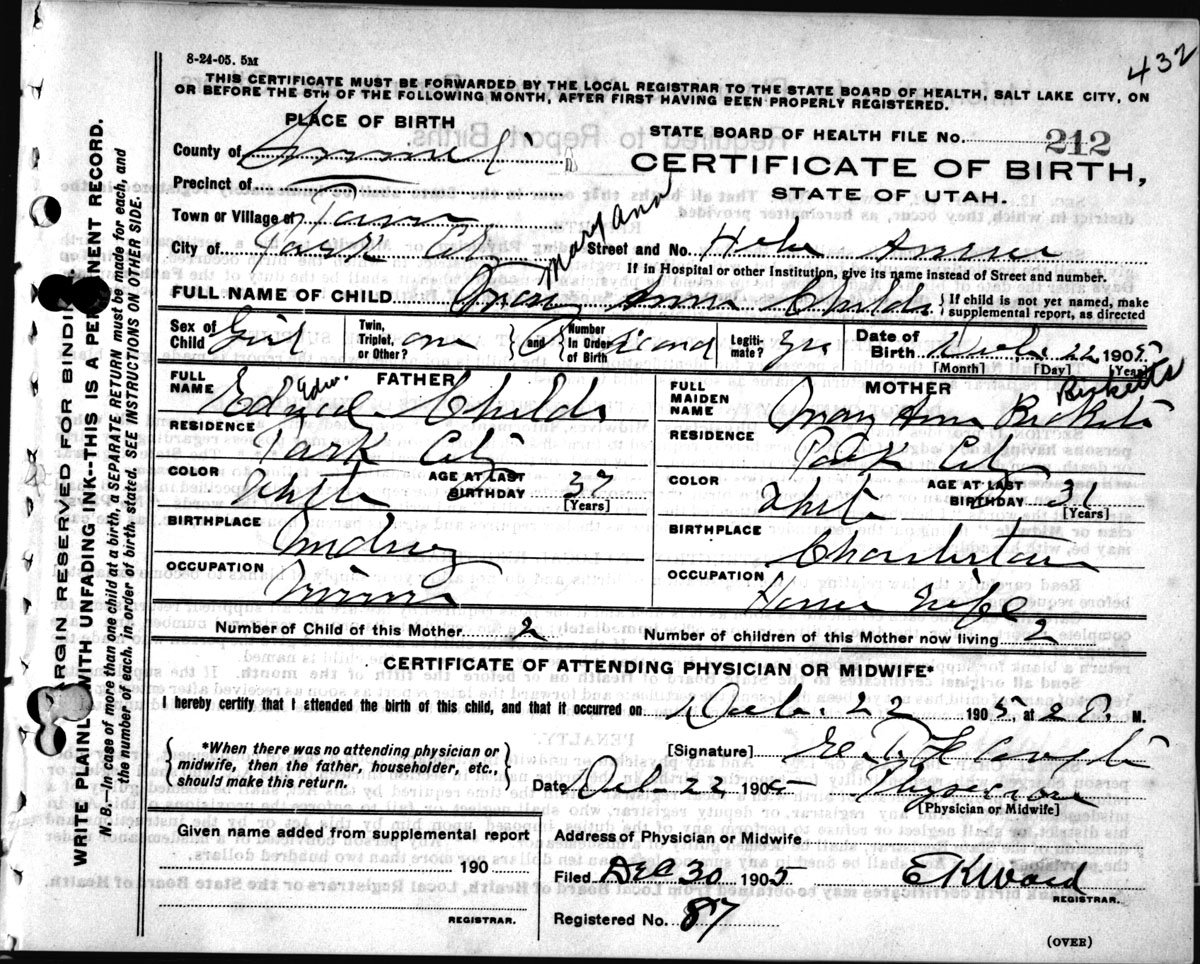 432
8-24-05. 5M
THIS CERTIFICATE MUST BE FORWARDED BY THE LOCAL REGISTRAR TO THE STATE BOARD OF HEALTH, SALT LAKE CITY, ON
OR BEFORE THE 5TH OF THE FOLLOWING MONTH, AFTER FIRST HAVING BEEN PROPERLY REGISTERED.
PLACE OF BIRTH
STATE BOARD OF HEALTH FILE No. 212
County of Summit
CERTIFICATE OF BIRTH,
Precinct of
STATE OF UTAH.
Town or Village of
Mary Ann
City of Park City Street and No.
If in Hospital or other Institution, give its name instead of Street and number.
FULL NAME OF CHILD Mary Anna Childs { If child is not yet named, make supplemental report, as directed
Sex of Child Girl Twin, Triplet, or Other? one { and } Number In Order of Birth Second Legiti-mate? Yes Date of Birth Dec. 22 1905
[Month] [Day] [Year]
FATHER
FULL NAME Childs
RESIDENCE Park City
COLOR White AGE AT LAST BIRTHDAY 37 [Years]
BIRTHPLACE Midway
OCCUPATION Miner
MOTHER Ricketts
FULL MAIDEN NAME Mary Ann
RESIDENCE Park City
COLOR White AGE AT LAST BIRTHDAY 31 [Years]
BIRTHPLACE Charleston
OCCUPATION House Wife
Number of Child of this Mother 2 Number of children of this Mother now living 2
CERTIFICATE OF ATTENDING PHYSICIAN OR MIDWIFE*
I hereby certify that I attended the birth of this child, and that it occurred on Dec. 22 1905, at 2 M.
*When there was no attending physician or midwife, then the father, householder, etc., should make this return.
[Signature]
Date Dec 22 1905 Physician
[Physician or Midwife]
Given name added from supplemental report
190
REGISTRAR.
Address of Physician or Midwife
Filed Dec 30 1905 E K Ward
REGISTRAR.
Registered No. 87
(OVER)
MARGIN RESERVED FOR BINDING
WRITE PLAINLY WITH UNFADING INK--THIS IS A PERMANENT RECORD.
N. B.--In case of more than one child at a birth, a SEPARATE RETURN must be made for each, and
the number of each, in order of birth, stated. SEE INSTRUCTIONS ON OTHER SIDE.